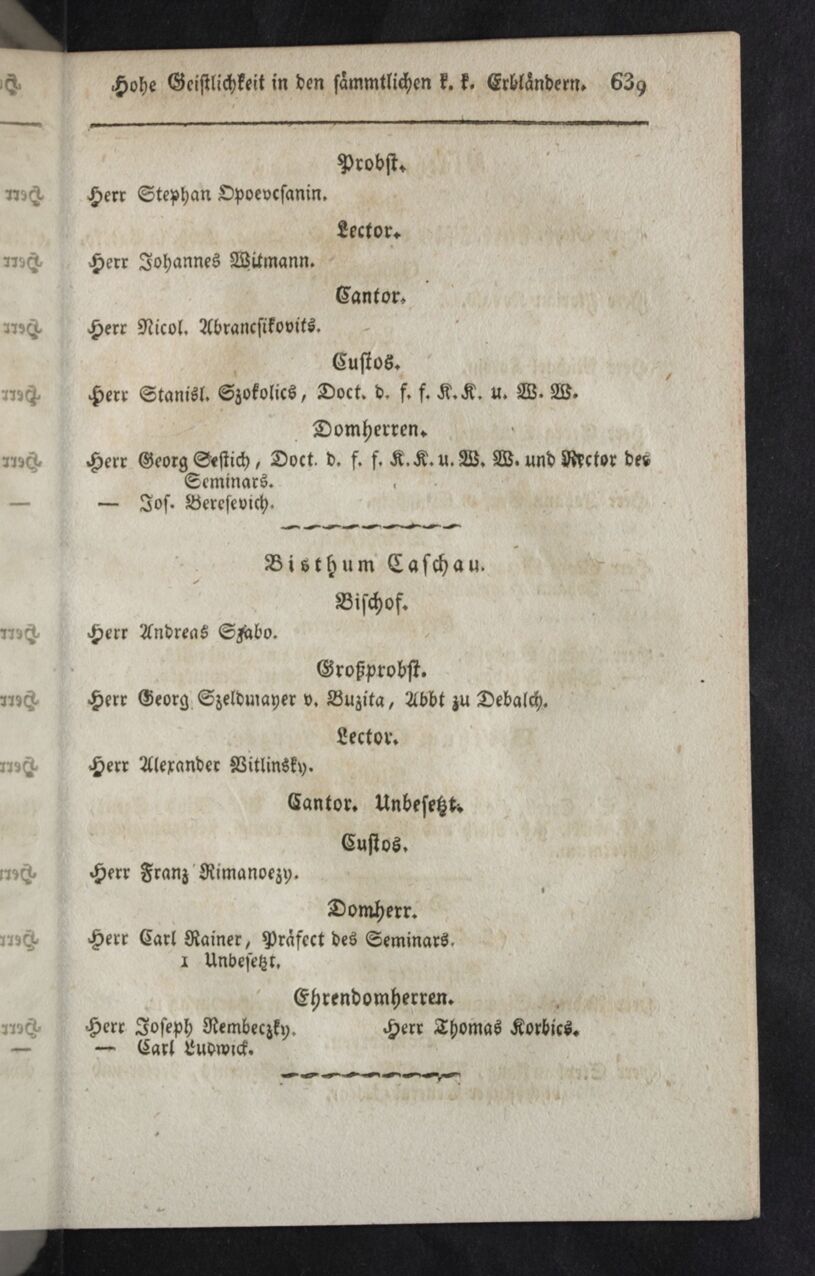 Hohe Geistlichkeit in den sämmtlichen k. k. Erbländern. 639
Probst.
Herr Stephan Opoevcsanin.
Lector.
Herr Johannes Witmann.
Cantor.
Herr Nicol. Abrancsikovits.
Custos.
Herr Stanisl. Szokolics, Doct. d. f. f. K.K. u. W. W.
Domherren.
Herr Georg Sestich, Doct. d. f. f. K.K. u. W. W. und Rector des
Seminars.
— Jos. Beresevich.
Bisthum Caschau.
Bischof.
Herr Andreas Szabo.
Großprobst.
Herr Georg Szeldmayer v. Buzita, Abbt zu Debalch.
Lector.
Herr Alexander Vitlinsky.
Cantor. Unbesetzt.
Custos.
Herr Franz Rimanoezy.
Domherr.
Herr Carl Rainer, Präfect des Seminars.
1 Unbesetzt.
Ehrendomherren.
Herr Joseph Rembeczky. Herr Thomas Korbics.
— Carl Ludwick.